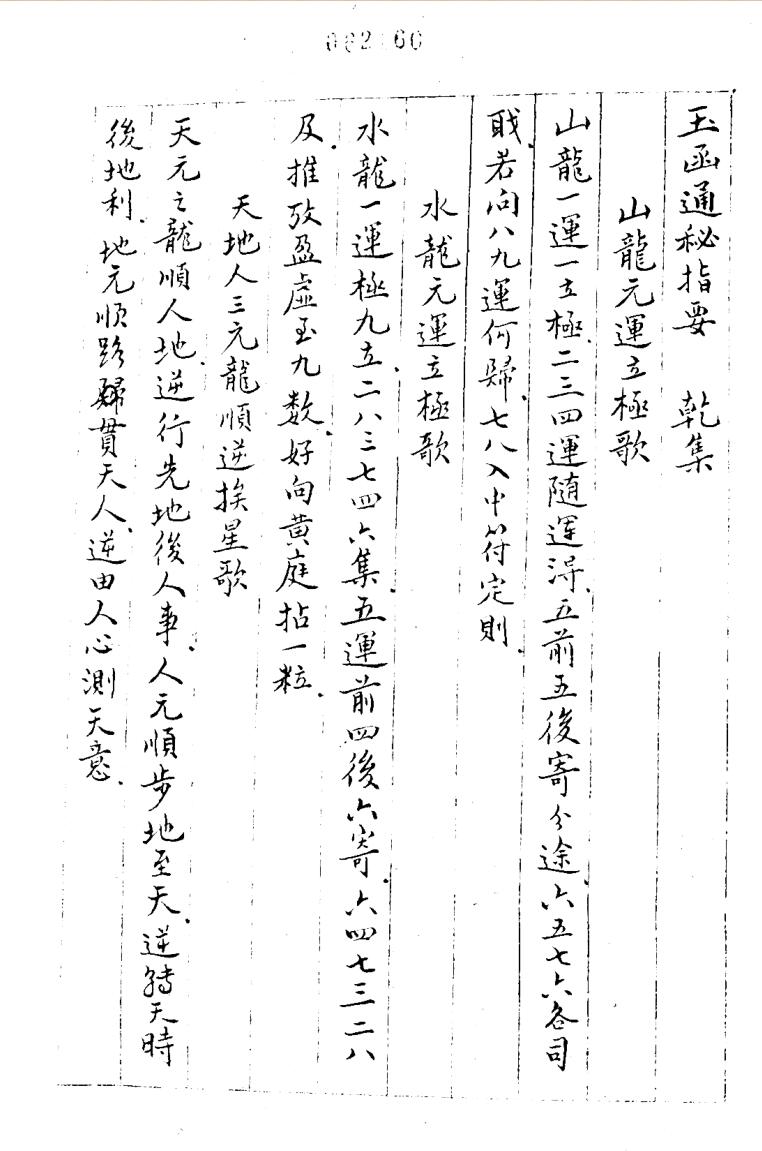 002166
玉函通秘指要　乾集
山龍元運立極歌
山龍一運一立極．二三四運隨運淂．五前五後寄分途．六五七六各司
戝．若问八九運何歸．七八入中符定則．
水龍元運立極歌
水龍一運極九立．二八三七四六集．五運前四後六寄．六四七三二八
及．推攷盈虛至九数．好向黃庭拈一粒．
天地人三元龍順逆挨星歌
天元之龍順人地．逆行先地後人事．人元順步地至天．逆轉天時
後地利．地元順路歸貫天人．逆由人心測天意．